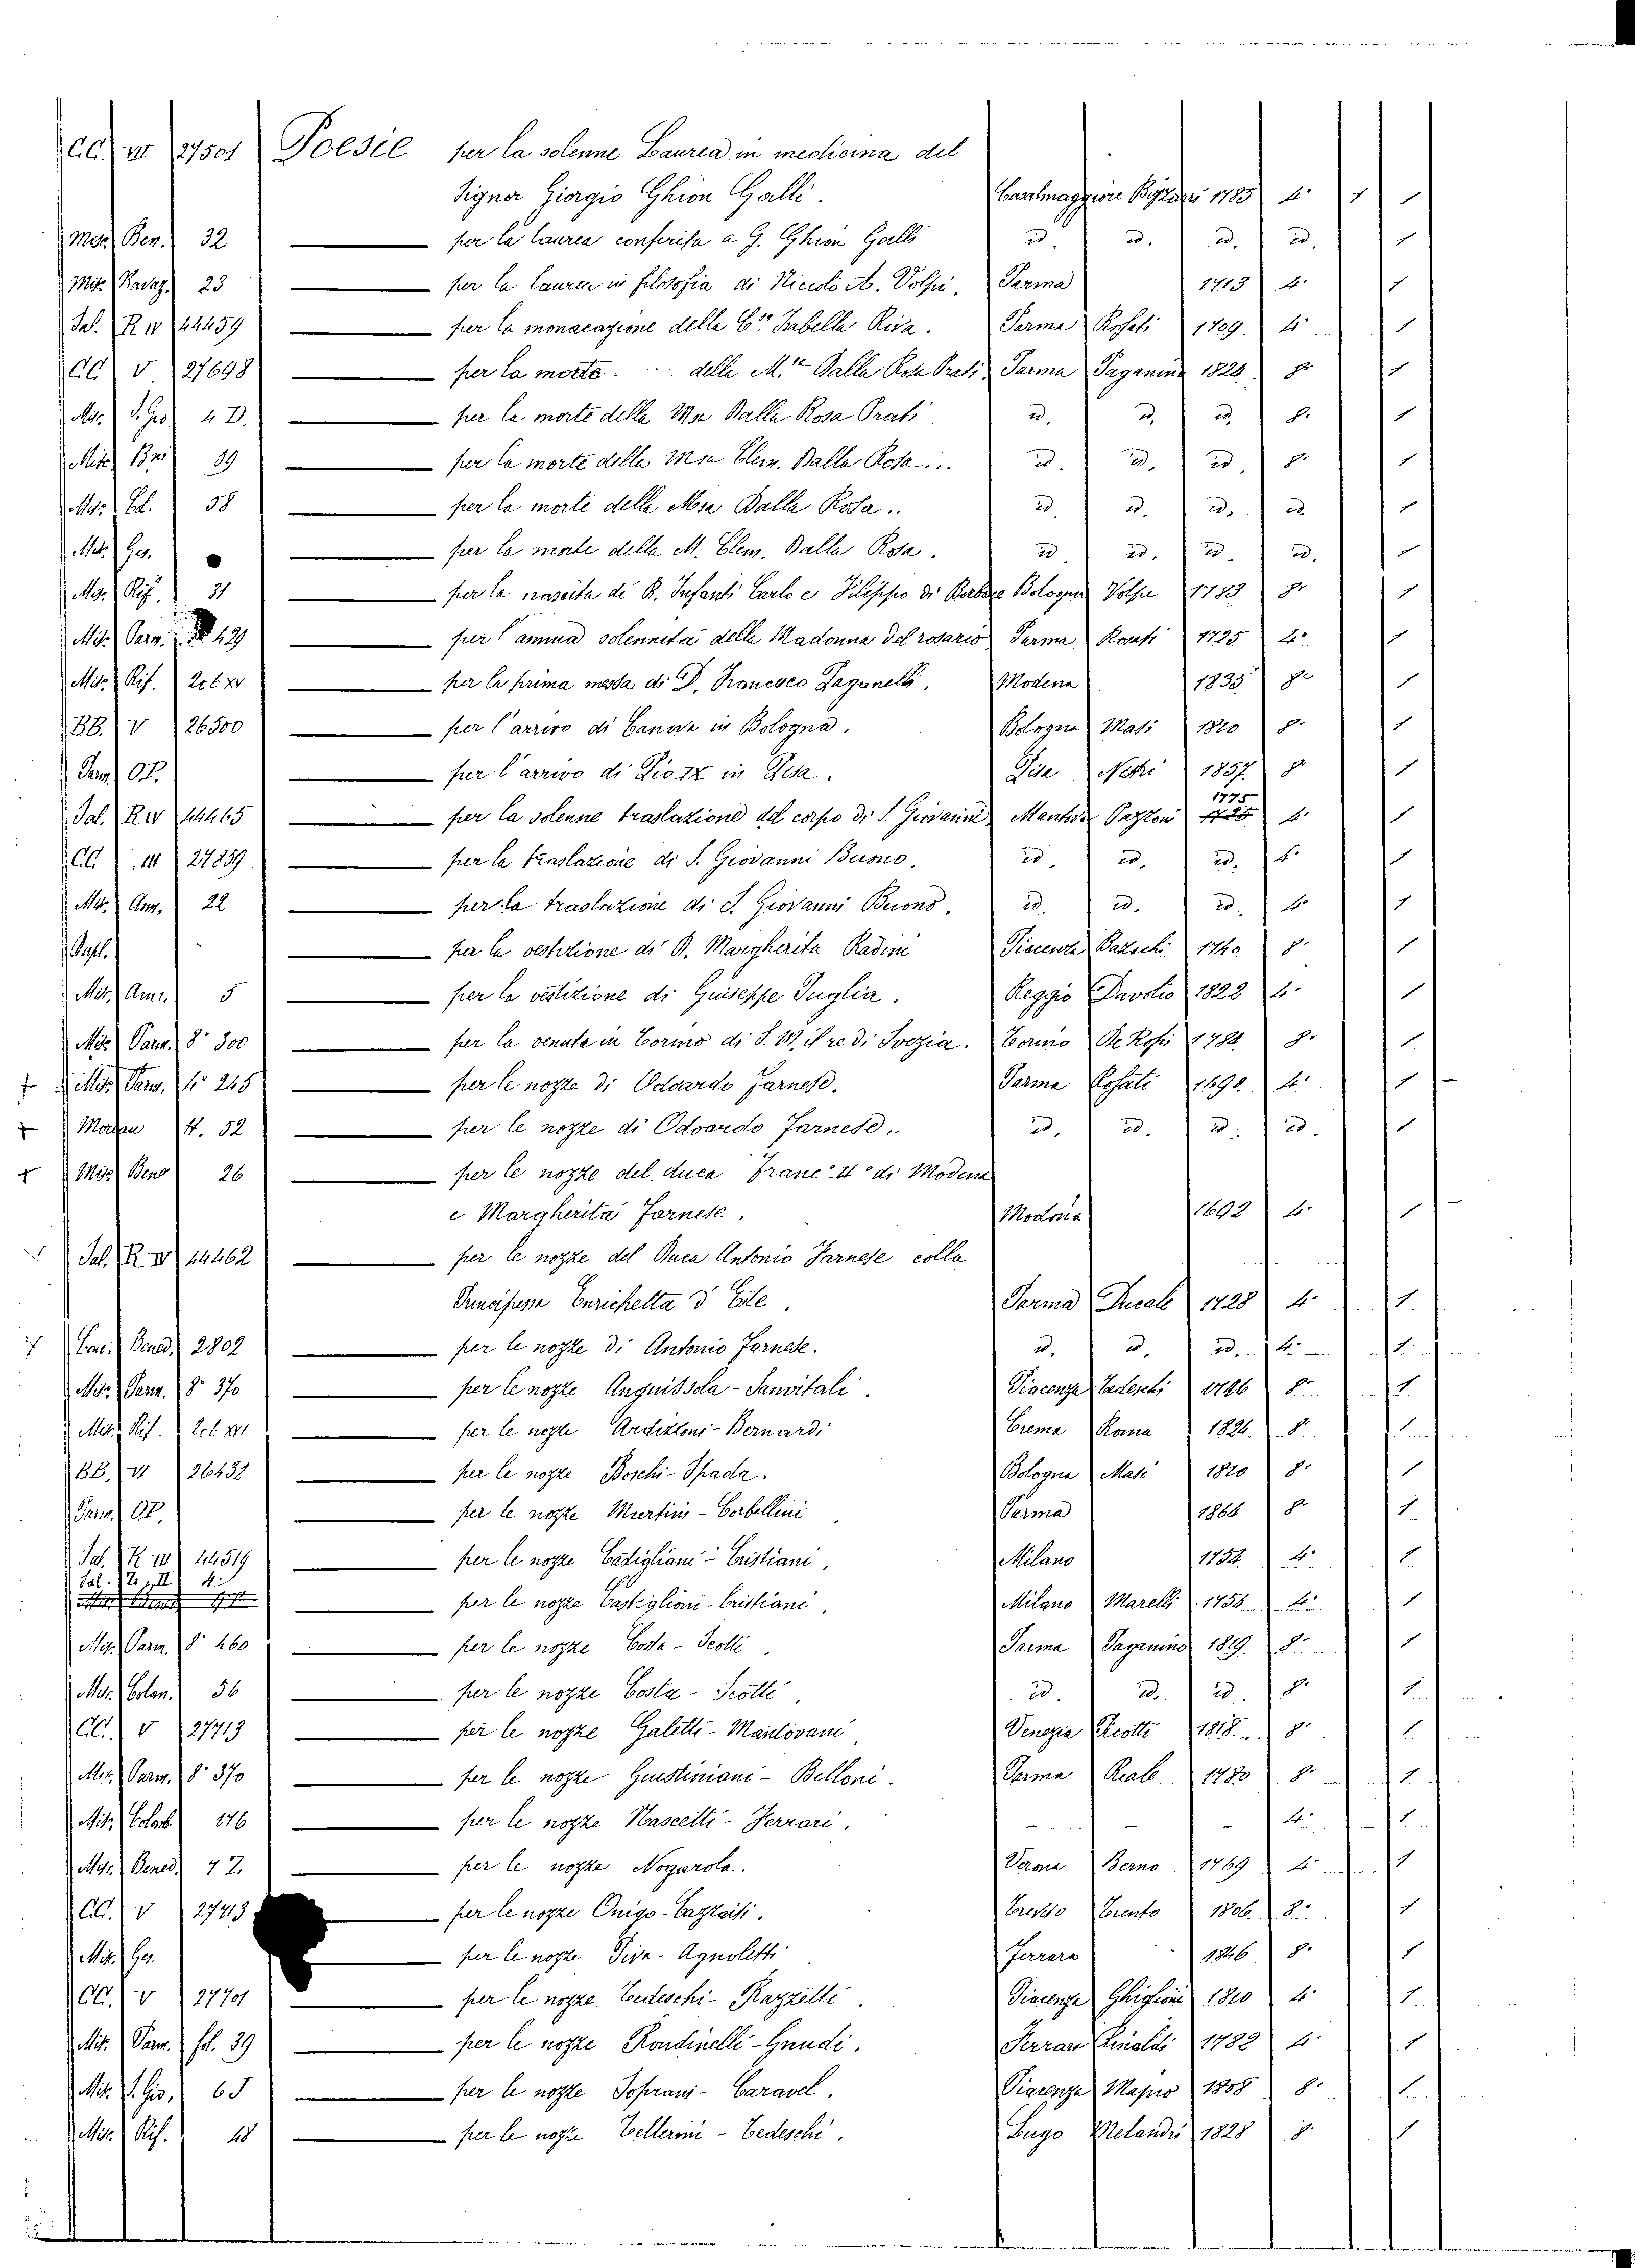 CC. VI 27501 Poesie per la solenne Laurea in medicina del
Signor Giorgio Ghion Galli. Casalmaggiore 1783 4° 1 1
Misc. Ben. 32 per la laurea conferita a G. Ghion Galli id. id. id. id. 1
Misc. 23 per la laurea in filosofia di Nicolò A. Volpi. Parma 1713 4° 1
Sal. R IV 44459 per la monacazione della C.sa Isabella Riva. Parma Rosati 1709. 4° 1
CC V 27698 per la morte . . . . della M.se Dalla Rosa Prati. Parma Paganino 1826. 8° 1
Misc. S. Gio. 4 D. per la morte della Msa Dalla Rosa Prati id. id. id. 8. 1
Misc. 39 per la morte della Msa Clem. Dalla Rosa ... id. id. id. 8° 1
Misc. Ed. 58 per la morte della Msa Dalla Rosa .. id. id. id. id 1
Misc. Ges. per la morte della M. Clem. Dalla Rosa. id id. id. id. 1
Misc. Rif. 31 per la nascita di R. Infanti Carlo e Filippo di Bologna Volpe 1783 8° 1
Misc. Parm. 429 per l'annua solennità della Madonna del rosario Parma Rosati 1725 4° 1
Misc. Rif. XV per la prima messa di D. Francesco Paganelli. Modena 1835 8° 1
BB. V 26500 per l'arrivo di Canova in Bologna. Bologna Masi 1810 8° 1
Parm. OP. per l'arrivo di Pio IX in Pisa. Pisa Nistri 1857 8° 1
1775
Sal. R IV 44465 per la solenne traslazione del corpo di S. Giovanni Mantova Pazzoni 4° 1
CC. VI 27839 per la traslazione di S. Giovanni Buono. id. id. id. 4° 1
Misc. Ann. 22 per la traslazione di S. Giovanni Buono. id. id. id. 4° 1
per la vestizione di B. Margherita Radini Piacenza 1740. 8° 1
Misc. Ann. 5 per la vestizione di Giuseppe Puglia. Reggio Davolio 1822 4° 1
Misc. Parm. 8° 300 per la venuta in Torino di S. M. il re di Svezia. Torino De Rossi 1784 8° 1
+ Misc. Parm. 4° 245 per le nozze di Odoardo Farnese. Parma Rosati 1690. 4° 1 -
+ Moreau 4. 52 per le nozze di Odoardo Farnese. id. id. id. id. 1
+ Misc. Bened 26 per le nozze del duca Franc° II° di Modena
e Margherita Farnese. Modena 1692 4° 1 -
Sal. R IV 44462 per le nozze del Duca Antonio Farnese colla
Principessa Enrichetta d'Este. Parma Ducale 1728 4° 1
Bened. 2802 per le nozze di Antonio Farnese. id. id. id. 4° 1
Misc. Parm. 8° 370 per le nozze Anguissola-Sanvitali. Piacenza Tedeschi 1796 8° 1
Misc. Rif. XVI per le nozze Ardizzoni-Bernardi Crema Rona 1826 8. 1
BB. VI 26432 per le nozze Boschi-Spada. Bologna Masi 1810 8° 1
Parm. OP. per le nozze Martini-Corbellini Parma 1864 8° 1
Sal. R IV 44519 per le nozze Castiglioni-Cristiani. Milano 1754. 4° 1
Sal. II 4. per le nozze Castiglioni-Cristiani. Milano Marelli 1754 4° 1
Misc. Parm. 8° 460 per le nozze Costa-Scotti Parma Paganino 1819. 8° 1
Misc. Colomb. 56 per le nozze Costa-Scotti id. id. id. 8° 1
CC. V 27713 per le nozze Galitti-Mantovani Venezia Picotti 1818. 8° 1
Misc. Parm. 8° 370 per le nozze Giustiniani-Belloni. Parma Reale 1780 8° 1
Misc. Colomb. 176 per le nozze Nascelli-Ferrari. - - - 4° 1
Misc. Bened. 4 Z. per le nozze Nogarola. Verona Berno 1769 4° 1
CC. V 27713 per le nozze Onigo- Treviso Trento 1806 8° 1
Misc. Ges. per le nozze Piva-Agnoletti Ferrara 1846 8° 1
CC. V 27701 per le nozze Tedeschi-Razzetti. Piacenza Ghiglioni 1810 4° 1
Misc. Parm. fol. 39 per le nozze Rondinelli-Gnudi. Ferrara Rinaldi 1782 4° 1
Misc. S. Gio. 6 J per le nozze Soprani-Caravel. Piacenza Majno 1808 8° 1
Misc. Rif. 48 per le nozze Tellerini-Tedeschi. Lugo Melandri 1828 8° 1